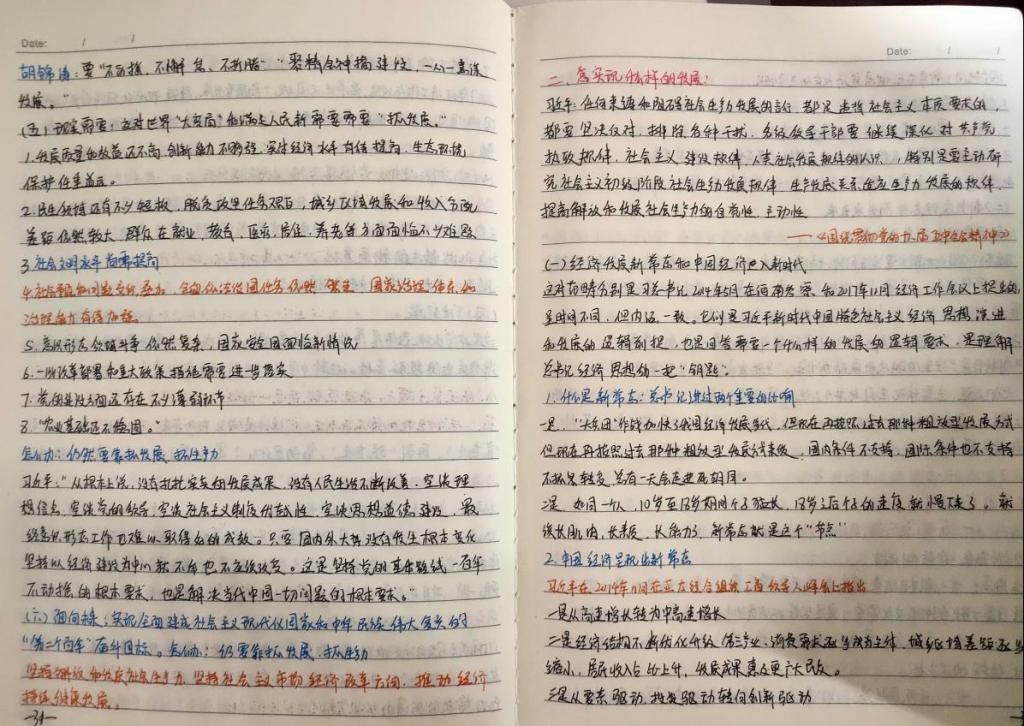 Date: / /
胡锦涛：要"不动摇、不懈怠、不折腾" "聚精会神搞建设，一心一意谋
发展。"
（五）现实需要：应对世界"大变局"和满足人民新需要需要"抓发展。"
1.发展质量和效益还不高 创新能力不够强，实体经济水平有待提高，生态环境
保护任重道远。
2.民生领域还有不少短板，脱贫攻坚任务艰巨，城乡区域发展和收入分配
差距依然较大，群众在就业，教育，医疗，居住，养老等方面面临不少难题
3.社会文明水平尚需提高
4.社会矛盾和问题交织叠加，全面依法治国任务依然繁重，国家治理体系和
治理能力有待加强
5.意识形态领域斗争依然复杂，国家安全面临新情况
6.一些改革部署和重大政策措施需要进一步落实
7.党的建设方面还存在不少薄弱环节
8."农业基础还不稳固。"
怎么办：仍然要靠抓发展，抓生产力
习近平："从根本上说，没有扎扎实实的发展成果，没有人民生活不断改善，空谈理
想信念，空谈党的领导，空谈社会主义制度优越性，空谈思想道德建设，最
终意识形态工作也难以取得好的成效。只要国内外大势没有发生根本变化
坚持以经济建设为中心就不能也不应该改变。这是坚持党的基本路线一百年
不动摇的根本要求，也是解决当代中国一切问题的根本要求。"
（六）面向未来：实现全面建成社会主义现代化国家和中华民族伟大复兴的
"第二个百年"奋斗目标。怎么办：仍要靠抓发展，抓生产力
坚持解放和发展社会生产力，坚持社会主义市场经济改革方向，推动经济
持续健康发展。
—34—
Date: / /
二、需实现什么样的发展：
习近平：任何束缚和阻碍社会生产力发展的言行，都是违背社会主义本质要求的
都要坚决反对，排除各种干扰，各级领导干部要继续深化对共产党
执政规律，社会主义建设规律，人类社会发展规律的认识，特别是要主动研
究社会主义初级阶段社会生产力发展规律，生产关系适应生产力发展的规律
提高解放和发展社会生产力的自觉性，主动性
——《围绕贯彻党的十八届五中全会精神》
（一）经济发展新常态和中国经济进入新时代
这对范畴分别是习总书记2014年5月在河南考察和2017年12月经济工作会议上提出的
时间不同，但内涵一致。它们是习近平新时代中国特色社会主义经济思想演进
和发展的逻辑前提，也是回答需要一个什么样的发展的逻辑要求，是理解
总书记经济思想的一把"钥匙"
1.什么是新常态：总书记讲过两个重要的比喻
一是，"大兵团"作战加快了我国经济发展步伐，但现在再按照过去那种粗放型发展方式
但现在再按照过去那种粗放型发展方式来做，国内条件不支持，国际条件也不支持
不抓紧转变，总有一天会走进死胡同。
二是 如同一个人，10岁至18岁期间个子猛长，18岁之后个子的速度就慢下来了，就
该长肌肉，长素质，长能力了，新常态就是这个"节点"
2.中国经济呈现出新常态
习近平在2014年11月在亚太经合组织工商领导人峰会上指出
一是从高速增长转为中高速增长
二是经济结构不断优化升级，第三产业，消费需求逐步成为主体，城乡区域差距逐步
缩小，居民收入占比上升，发展成果惠及更广大民众。
三是从要素驱动，投资驱动转向创新驱动